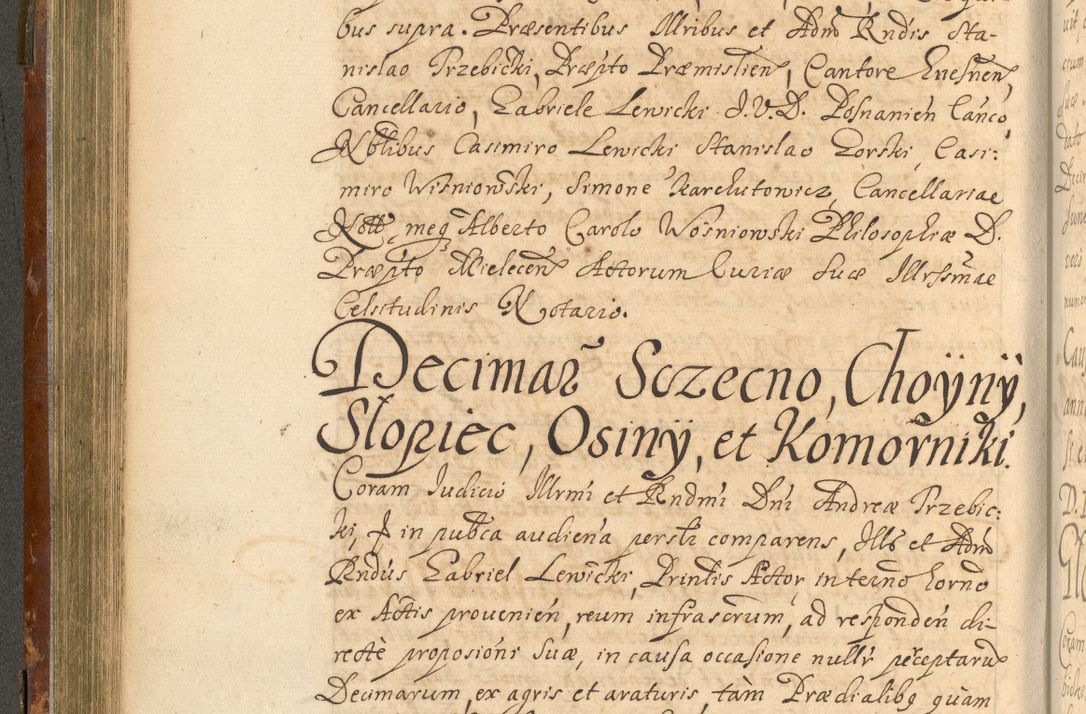 bus supra. Præsentibus Illribus et Adm̃ Rndis Sta-
nislao Trzebicki, Præpto Præmislien, Cantore Gnesnen,
Cancellario, Gabriele Lewicki J.V.D. Posnanien Canco,
Nobilibus Casimiro Lewicki Stanislao Gorski, Casi:
miro Wisniowski, Simone Karchutowicz, Cancellariae
Nott. meq Alberto Carolo Wosniowski Philosophiæ D.
Præpto Mielecen Actorum Curiæ Suæ Illrssmae
Celsitudinis Notario.
Decimar̃ Sczecno, Choÿnÿ,
Slopiec, Osinÿ, et Komorniki.
Coram Judicio Illrmi et Rndmi Dni Andreæ Trzebic:
ki, in pubca audiena perstr comparens, Ills et Adm̃
Rndus Gabriel Lewicki, Printis Actor, in termo horno
ex Actis provenien, reum infrascrum, ad responden di-
rectè proposioni suæ, in causa occasione nullr perceptarũ
Decimarum, ex agris et araturis, tàm Prædialibq quam